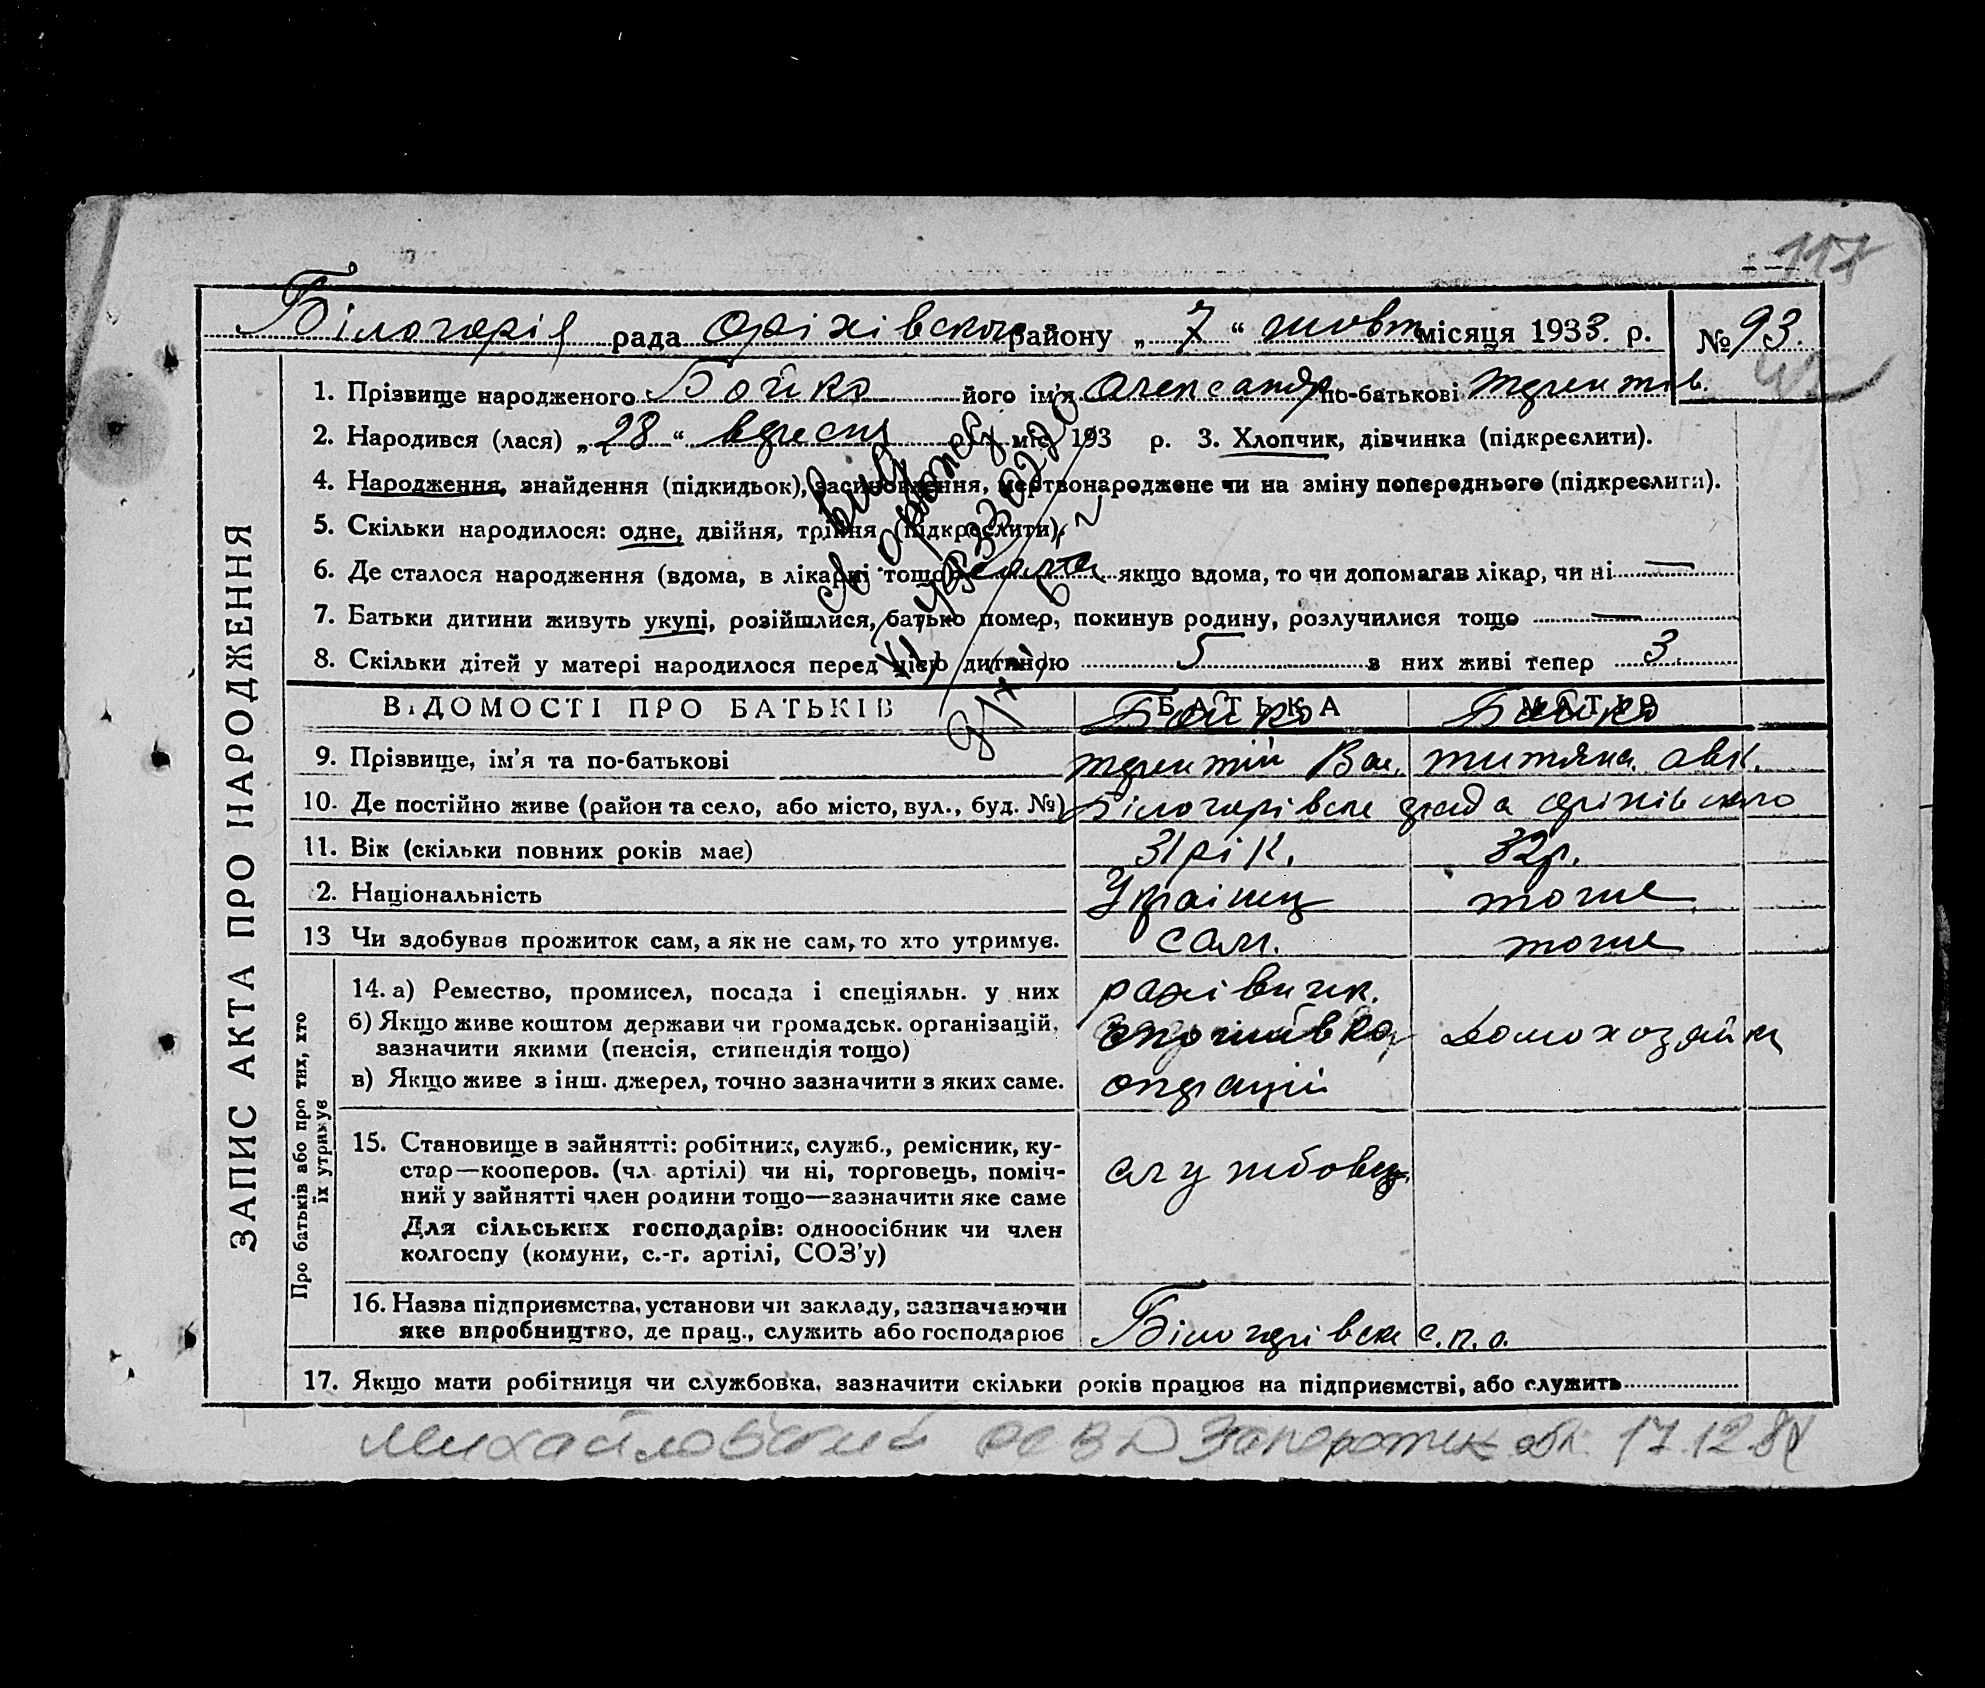 117
Білогорія рада Оріхівского району „ 7 “ жовт місяця 1933. р. № 93.
1. Прізвище народженого Бойко його ім'я Олександр по-батькові Терентів.
2. Народився (лася) „ 28 “ вересня міс. 193 р. 3. Хлопчик, дівчинка (підкреслити).
4. Народження, знайдення (підкидьок), засиновлення, мертвонароджене чи на зміну попереднього (підкреслити).
5. Скільки народилося: одне, двійня, трійня (підкреслити).
6. Де сталося народження (вдома, в лікарні тощо) якщо вдома, то чи допомагав лікар, чи ні —
7. Батьки дитини живуть укупі, розійшлися, батько помер, покинув родину, розлучилися тощо —
8. Скільки дітей у матері народилося перед цією дитиною 5 з них живі тепер 3
ВІДОМОСТІ ПРО БАТЬКІВ БАТЬКА МАТІР
Бойко Бойко
9. Прізвище, ім'я та по-батькові Терентій Вас. Титяна
10. Де постійно живе (район та село, або місто, вул., буд. №) Білогорівськ рада Оріхівского
11. Вік (скільки повних років має) 31 рік. 32 р.
2. Національність Українец тоже
13 Чи здобував прожиток сам, а як не сам, то хто утримує. сам. тоже
14. а) Ремество, промисел, посада і спеціяльн. у них рахівник.
б) Якщо живе коштом держави чи громадськ. організацій, зазначити якими (пенсія, стипендія тощо) споживко домохозяйка
в) Якщо живе з інш. джерел, точно зазначити з яких саме. операцій
15. Становище в зайнятті: робітник, служб., ремісник, ку-
стар—кооперов. (чл. артілі) чи ні, торговець, поміч- службовец.
ний у зайнятті член родини тощо—зазначити яке саме
Для сільських господарів: одноосібник чи член
колгоспу (комуни, с.-г. артілі, СОЗ'у)
16. Назва підприємства, установи чи закладу, зазначаючи
яке виробництво, де прац., служить або господарює Білогорівськ с.п.о.
17. Якщо мати робітниця чи службовка, зазначити скільки років працює на підприємстві, або служить
ЗАПИС АКТА ПРО НАРОДЖЕННЯ
Про батьків або про тих, хто їх утримує
Михайловский РОВД Запорожск обл. 17.12.84